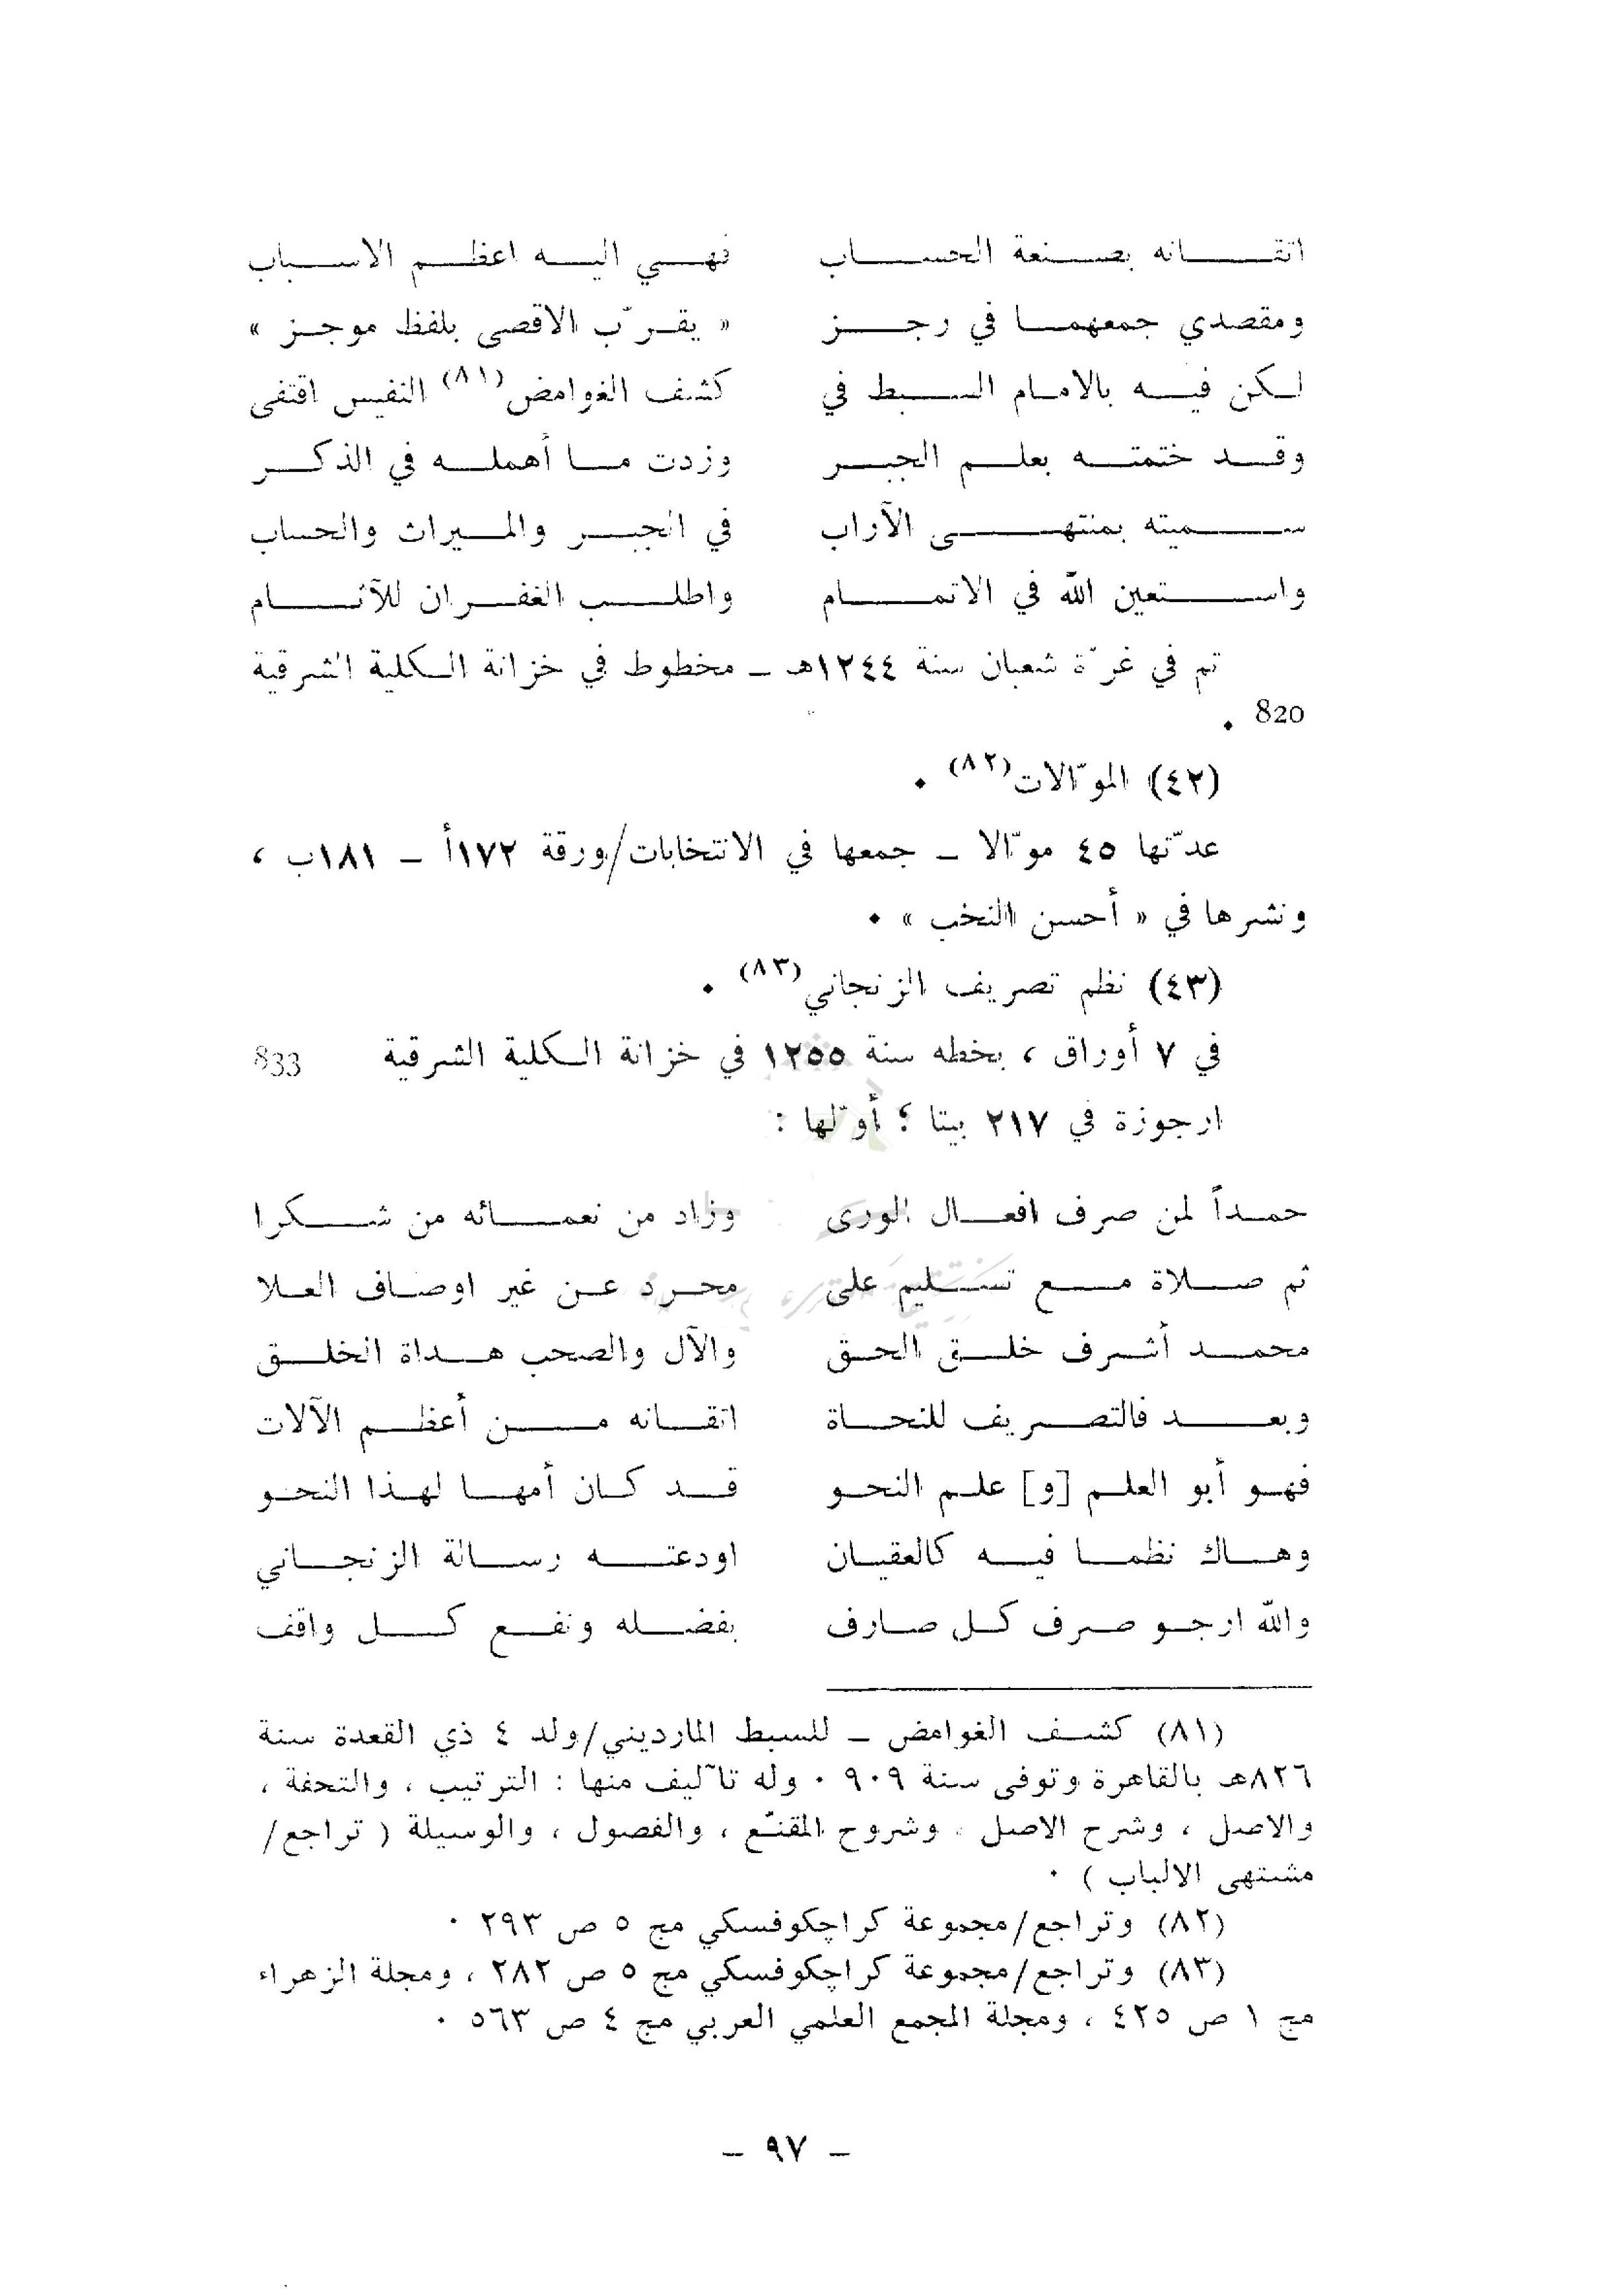 اتقانه بصنعة الحساب فهي اليه اعظم الاسباب
ومقصدي جمعهما في رجز « يقرّب الاقصى بلفظ موجز »
لكن فيه بالامام السبط في كشف الغوامض(٨١) النفيس اقتفى
وقد ختمته بعلم الجبر وزدت ما أهمله في الذكر
سميته بمنتهى الآراب في الجبر والميراث والحساب
واستعين الله في الاتمام واطلب الغفران للآثام
تم في غرّة شعبان سنة ١٢٤٤هـ ـ مخطوط في خزانة الكلية الشرقية
820 .
(٤٢) الموّالات(٨٢) .
عدّتها ٤٥ موّالا ـ جمعها في الانتخابات/ورقة ١٧٢أ ـ ١٨١ب ،
ونشرها في « أحسن النخب » .
(٤٣) نظم تصريف الزنجاني(٨٣) .
في ٧ أوراق ، بخطه سنة ١٢٥٥ في خزانة الكلية الشرقية 833
ارجوزة في ٢١٧ بيتا ؛ أوّلها :
حمداً لمن صرف افعال الورى وزاد من نعمائه من شكرا
ثم صلاة مع تسليم على محرد عن غير اوصاف العلا
محمد أشرف خلق الحق والآل والصحب هداة الخلق
وبعد فالتصريف للنحاة اتقانه من أعظم الآلات
فهو أبو العلم [و] علم النحو قد كان أمها لهذا النحو
وهاك نظما فيه كالعقيان اودعته رسالة الزنجاني
والله ارجو صرف كل صارف بفضله ونفع كل واقف
(٨١) كشف الغوامض ـ للسبط المارديني/ولد ٤ ذي القعدة سنة
٨٢٦هـ بالقاهرة وتوفى سنة ٩٠٩ . وله تآليف منها : الترتيب ، والتحفة ،
والاصل ، وشرح الاصل ، وشروح المقنّع ، والفصول ، والوسيلة ( تراجع/
مشتهى الالباب ) .
(٨٢) وتراجع/مجموعة كراچكوفسكي مج ٥ ص ٢٩٣ .
(٨٣) وتراجع/مجموعة كراچكوفسكي مج ٥ ص ٢٨٢ ، ومجلة الزهراء
مج ١ ص ٤٢٥ ، ومجلة المجمع العلمي العربي مج ٤ ص ٥٦٣ .
ـ ٩٧ ـ